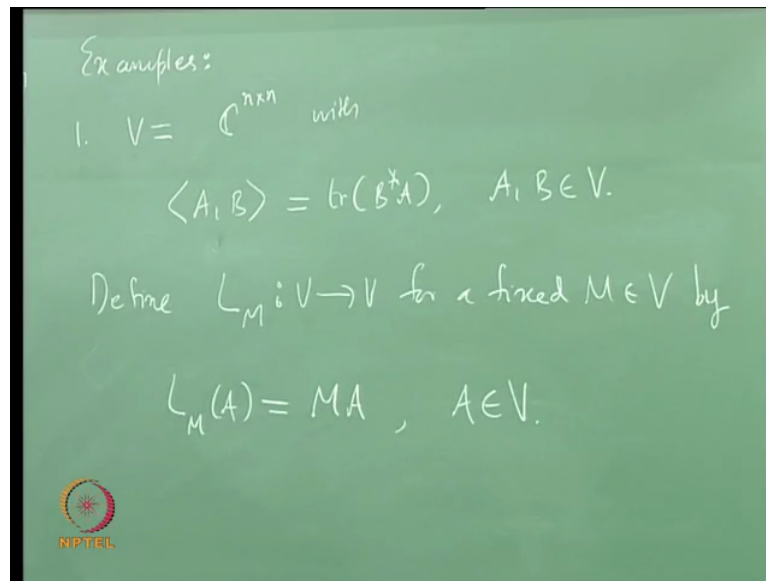 Examples:
1. V = ℂ^{n×n} with
⟨A, B⟩ = tr(B*A), A, B ∈ V.
Define L_M : V → V for a fixed M ∈ V by
L_M(A) = MA , A ∈ V.
NPTEL